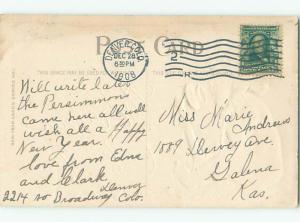 POST CARD
DENVER, COLO.
DEC 28
6 30 PM
1908
2
THIS SPACE MAY BE USED FOR
Will write later
the Persimmons
came here all well
wish all a Happy
New Year.
love from Edne
and Clark
2214 so Broadway Denver Colo.
Miss Marie
Andrews
1559 Denver Ave.
Galena
Kas.